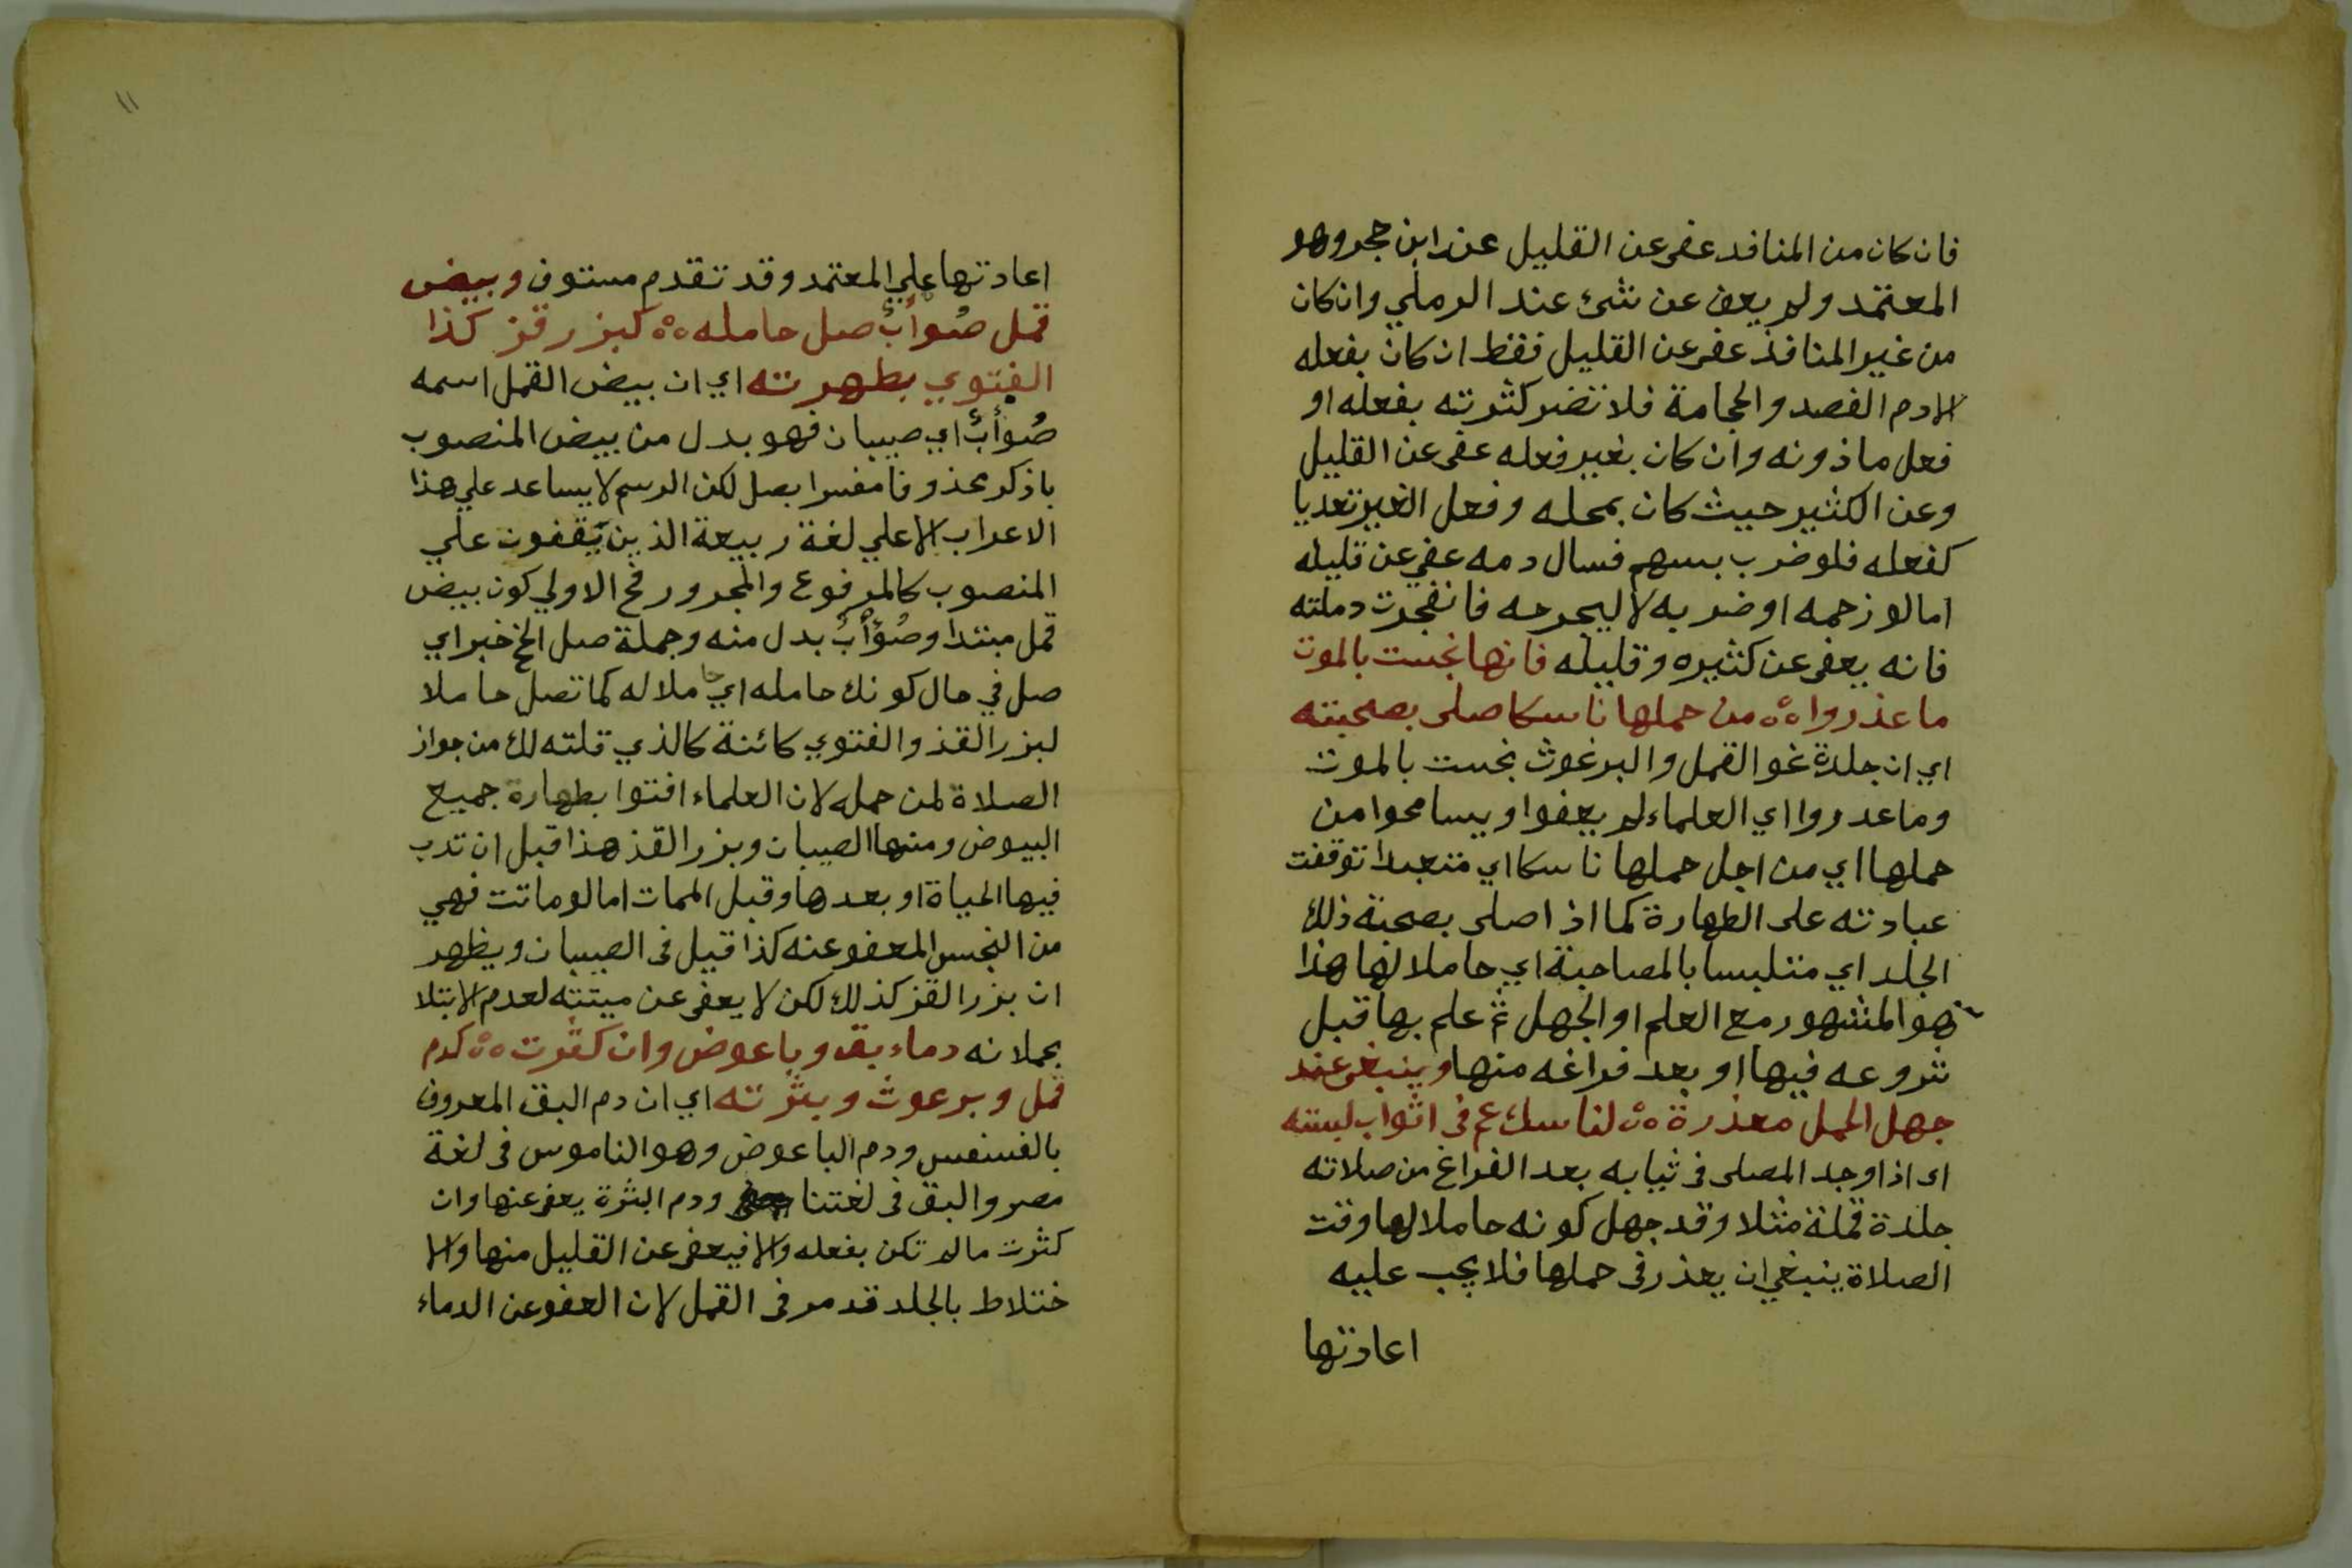 فان كان من المنافد عفى عن القليل عند ابن حجر وهو
المعتمد ولم يعف عن شئ عند الرملي وان كان
من غير المنافذ عفى عن القليل فقط ان كان بفعله
الادم الفصد والحجامة فلا تضر كثرته بفعله او
فعل ماذونه وان كان بغير فعله عفى عن القليل
وعن الكثير حيث كان بمحله وفعل الغير تعديا
كفعله فلو ضرب بسهم فسال دمه عفي عن قليله
امالو زحمه او ضربه لا ليجرحه فانفجرت دملته
فانه يعفى عن كثيره وقليله فانها نجست بالموت
ما عذروا ه‍ من حملها ناسكا صلى بصحبته
اي ان جلدة نحو القمل والبرغوث نجست بالموت
وما عدروا اي العلماء لم يعفوا ويسامحوا من
حملها اي من اجل حملها ناسكا اي متعبدا توقفت
عبادته على الطهارة كما اذا صلى بصحبة ذلك
الجلد اي متلبسا بالمصاحبة اي حاملا لها هذا
هو المشهور مع العلم او الجهل ثم علم بها قبل
شروعه فيها او بعد فراغه منها وينبغى عند
جهل الحمل معذرة ه‍ لناسك عم فى اثواب لبسته
اى اذا وجد المصلى فى ثيابه بعد الفراغ من صلاته
جلدة قملة مثلا وقد جهل كونه حاملا لها وقت
الصلاة ينبغي ان يعذر فى حملها فلا يجب عليه
اعادتها
١١
اعادتها علي المعتمد وقد تقدم مستوف وبيض
قمل صُوأبٌ صل حامله ه‍ كبزر قز كذا
الفتوي بطهرته اي ان بيض القمل اسمه
صُوأبٌ اي صيبان فهو بدل من بيض المنصوب
باذكر محذوفا مفسرا بصل لكن الرسم لا يساعد علي هذا
الاعراب الا علي لغة ربيعة الذين يقفون علي
المنصوب كالمرفوع والمجرور فح الاولي كون بيض
قمل مبتدا وصُوأبٌ بدل منه وجملة صل الخ خبر اي
صل في حال كونك حامله اي حاملا له كما تصل حاملا
لبزر القذ والفتوي كائنة كالذي قلته لك من جواز
الصلاة لمن حمله لان العلماء افتوا بطهارة جميع
البيوض ومنها الصيبان وبزر القذ هذا قبل ان تدب
فيها الحياة او بعدها وقبل الممات امالو ماتت فهي
من النجس المعفو عنه كذا قيل فى الصيبان ويظهر
ان بزر القز كذلك لكن لا يعفى عن ميتته لعدم الابتلا
بحملانه دماء بق وباعوض وان كثرت ه‍ كدم
قمل وبرعوث وبثرته اي ان دم البق المعروف
بالفسفس ودم الباعوض وهو الناموس فى لغة
مصر والبق فى لغتنا ودم البثرة يعفى عنها وان
كثرت مالم تكن بفعله والا فيعفى عن القليل منها والا
ختلاط بالجلد قد مر فى القمل لان العفو عن الدماء